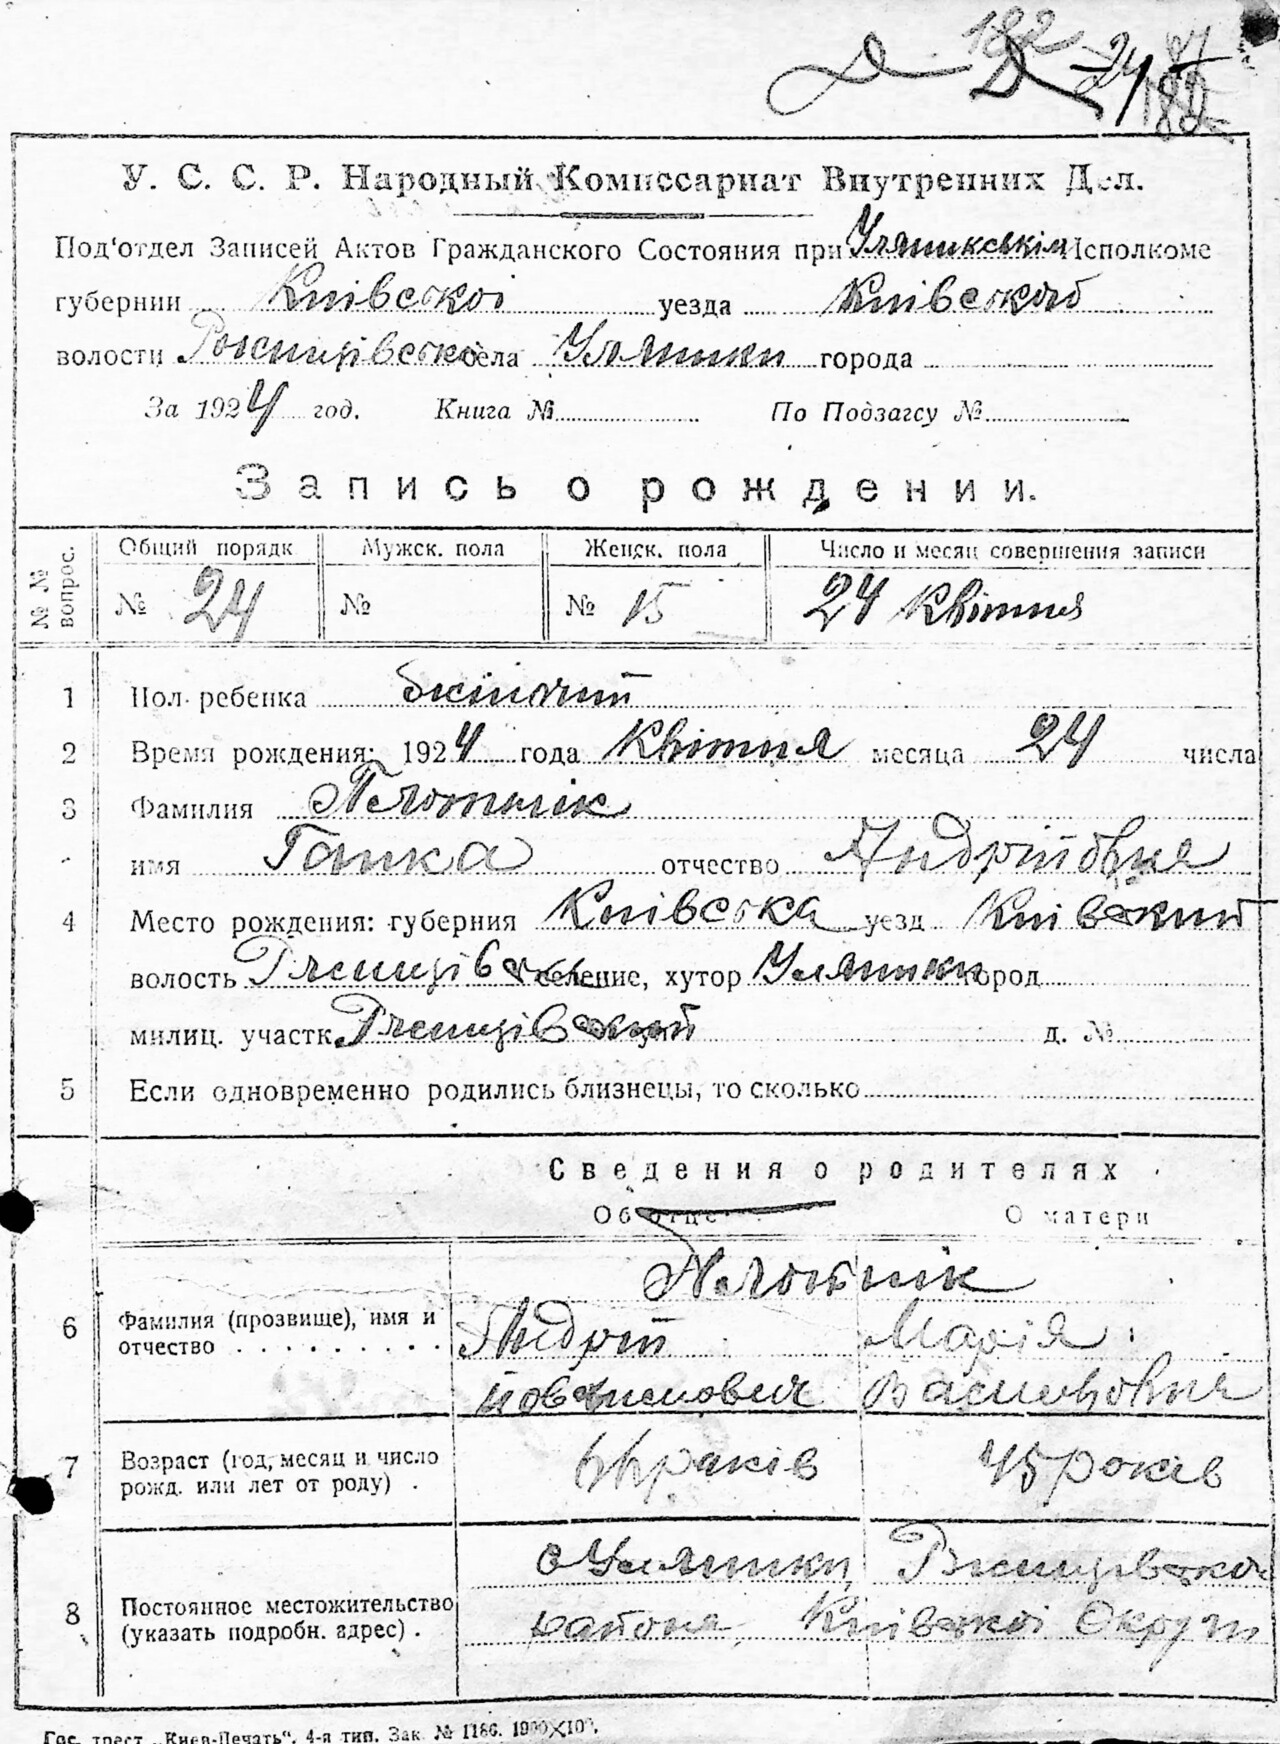 182 24
У. С. С. Р. Народный Комиссариат Внутренних Дел.
Под'отдел Записей Актов Гражданского Состояния при Уляниксьkім Исполкоме
губернии Київської уезда Київського
волости Ржищівської села Уляники города
За 1924 год. Книга № По Подзагсу №
Запись о рождении.
№ № вопрос. Общий порядк Мужск. пола Женск. пола Число и месяц совершения записи
№ 24 № № 15 24 Квітня
1 Пол ребенка жіночий
2 Время рождения: 1924 года Квітня месяца 24 числа
3 Фамилия Плотнік
имя Ганка отчество Андріївня
4 Место рождения: губерния Київська уезд Київский
волость Ржищівск селение, хутор Уляники город
милиц. участк. Ржищівський д. №
5 Если одновременно родились близнецы, то сколько
Сведения о родителях
Об отце О матери
Плотнік
6 Фамилия (прозвище), имя и Андрій Марія
отчество Василовня
7 Возраст (год, месяц и число рожд. или лет от роду) років 45 років
8 Постоянное местожительство (указать подробн. адрес) с Уляники, Ржищівської
района, Київскої Округи
Гос. трест „Киев-Печать“. 4-я тип. Зак. № 1186.